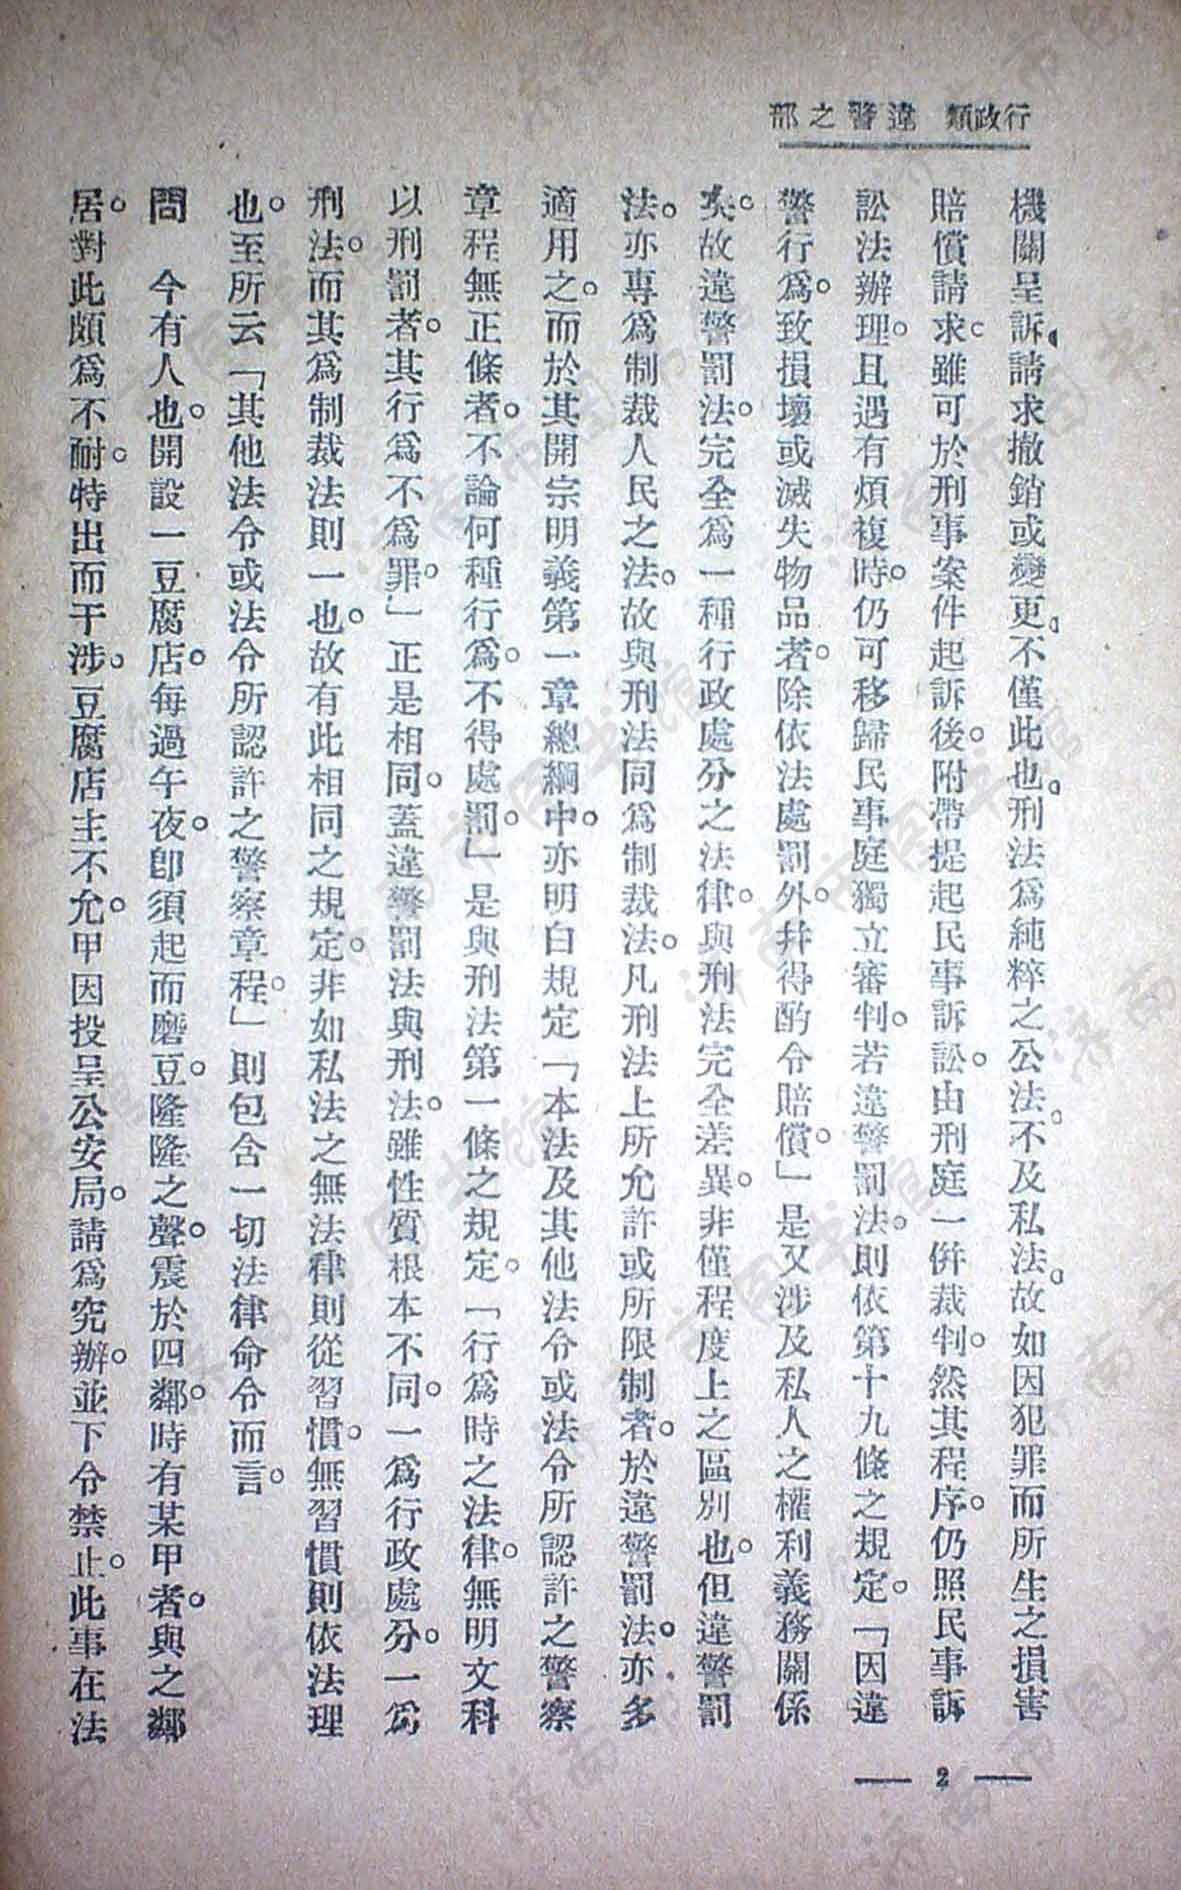 行政類　違警之部
機關呈訴。請求撤銷或變更。不僅此也。刑法爲純粹之公法。不及私法。故如因犯罪而所生之損害
賠償請求。雖可於刑事案件起訴後。附帶提起民事訴訟。由刑庭一併裁判。然其程序。仍照民事訴
訟法辦理。且遇有煩複時。仍可移歸民事庭獨立審判。若違警罰法。則依第十九條之規定。「因違
警行爲。致損壞或滅失物品者。除依法處罰外。幷得酌令賠償。」是又涉及私人之權利義務關係
矣。故違警罰法。完全爲一種行政處分之法律。與刑法完全差異。非僅程度上之區別也。但違警罰
法。亦專爲制裁人民之法。故與刑法同爲制裁法。凡刑法上所允許或所限制者。於違警罰法。亦多
適用之。而於其開宗明義第一章總綱中。亦明白規定「本法及其他法令或法令所認許之警察
章程無正條者。不論何種行爲。不得處罰。」是與刑法第一條之規定。「行爲時之法律。無明文科
以刑罰者。其行爲不爲罪。」正是相同。蓋違警罰法與刑法。雖性質根本不同。一爲行政處分。一爲
刑法。而其爲制裁法則一也。故有此相同之規定。非如私法之無法律則從習慣。無習慣則依法理
也。至所云「其他法令或法令所認許之警察章程。」則包含一切法律命令而言。
問　今有人也。開設一豆腐店。每過午夜。卽須起而磨豆。隆隆之聲。震於四鄰。時有某甲者。與之鄰
居。對此頗爲不耐。特出而干涉。豆腐店主不允。甲因投呈公安局。請爲究辦。並下令禁止。此事在法
— 2 —
济南市图书馆